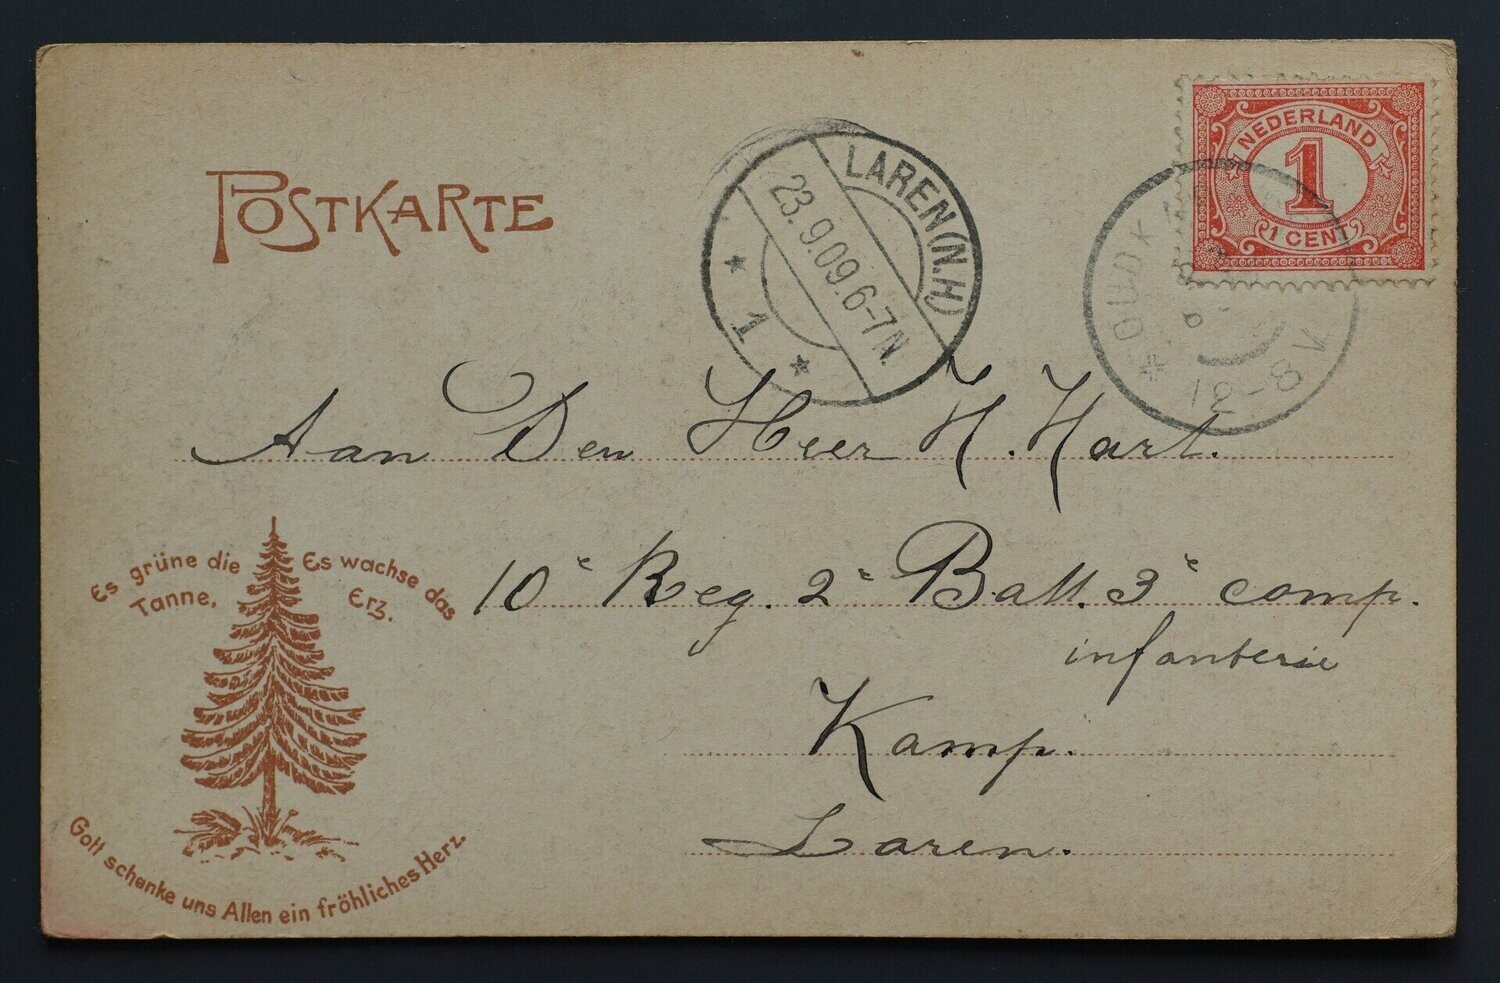 POSTKARTE
LAREN (N.H)
23.9.09.6-7N.
1
NEDERLAND
1
1 CENT
12-8V
Aan Den Heer H. Hart.
10e Reg. 2e Batt. 3e comp.
infanterie
Kamp.
Laren.
Es grüne die Tanne,
Es wachse das Erz.
Gott schenke uns Allen ein fröhliches Herz.